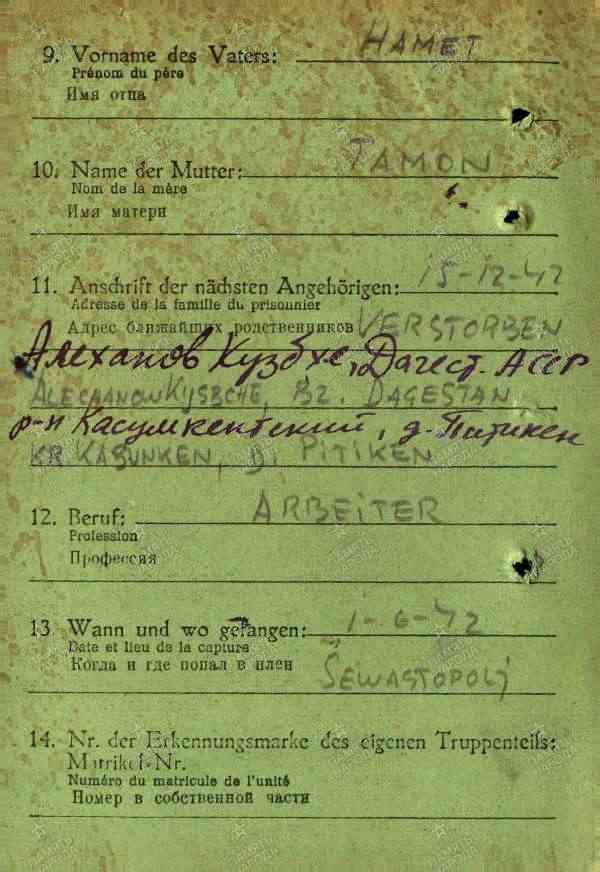 9. Vorname des Vaters: HAMET
Prénom du père
Имя отца
10. Name der Mutter: TAMON
Nom de la mère
Имя матери
11. Anschrift der nächsten Angehörigen: 15-12-42
Adresse de la famille du prisonnier
Адрес ближайших родственников VERSTORBEN
Алеханов Кузбхе, Дагест. АССР
ALECHANOW KYSBCHE, BZ. DAGESTAN
р-н Касумкентский, д. Питикен
KR KASUNKEN, D. PITIKEN
12. Beruf: ARBEITER
Profession
Профессия
13 Wann und wo gefangen: 1-6-42
Date et lieu de la capture
Когда и где попал в плен ŠEWASTOPOLJ
14. Nr. der Erkennungsmarke des eigenen Truppenteils:
Matrikel-Nr.
Numéro du matricule de l'unité
Номер в собственной части